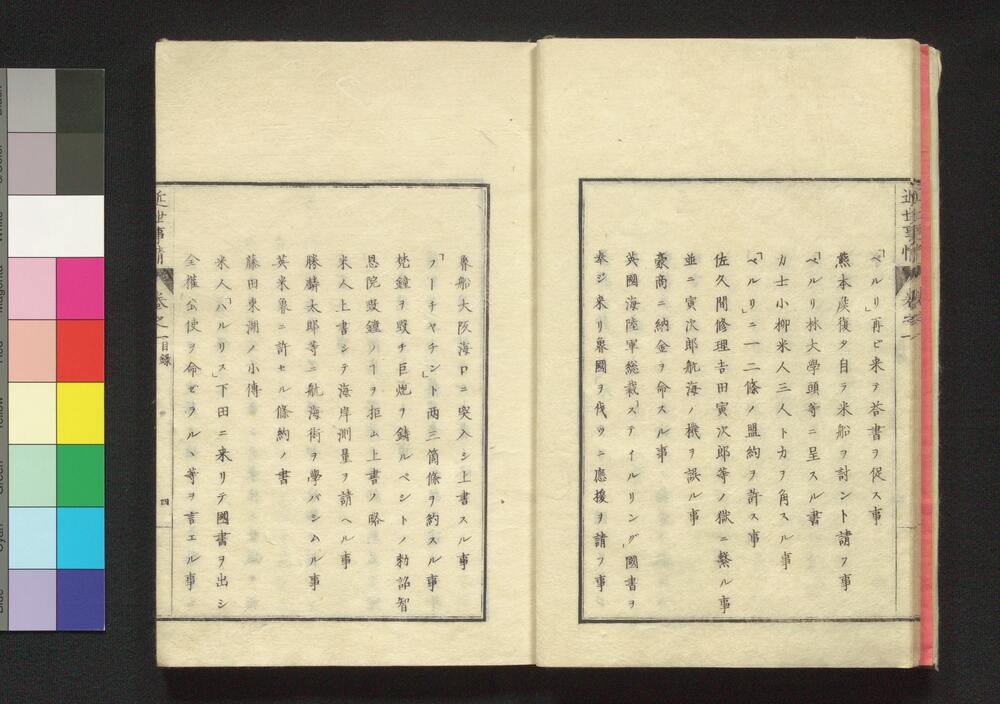 「ペルリ」再ビ来テ荅書ヲ促ス事
熊本矦復タ自ラ米船ヲ討ント請フ事
ペルリ林大學頭等ニ呈スル書
力士小柳米人三人ト力ヲ角スル事
「ペルリ」ニ一二條ノ盟約ヲ許ス事
佐久間修理吉田寅次郎等ノ獄ニ繋ル事
並ニ寅次郎航海ノ機ヲ誤ル事
豪商ニ納金ヲ命スル事
英國海陸軍総裁ステイルリング」國書ヲ
奉シ来リ魯國ヲ伐ツニ應援ヲ請フ事
近世事情
卷之一
魯船大阪海口ニ突入シ上書スル事
「フーチヤチン」ト两三箇條ヲ約スル事
梵鐘ヲ毀チ巨炮ヲ鑄ルベシトノ勅詔智
恩院毀鐘ノヿヲ拒ム上書ノ略
米人上書シテ海岸測量ヲ請ヘル事
勝麟太郎等ニ航海術ヲ學バシムル事
英米魯ニ許セル條約ノ書
藤田東湖ノ小傳
米人「ハルリス」下田ニ来リテ國書ヲ出シ
全権公使ヲ命ゼラルヽ等ヲ言エル事
近世事情
卷之一目録
四